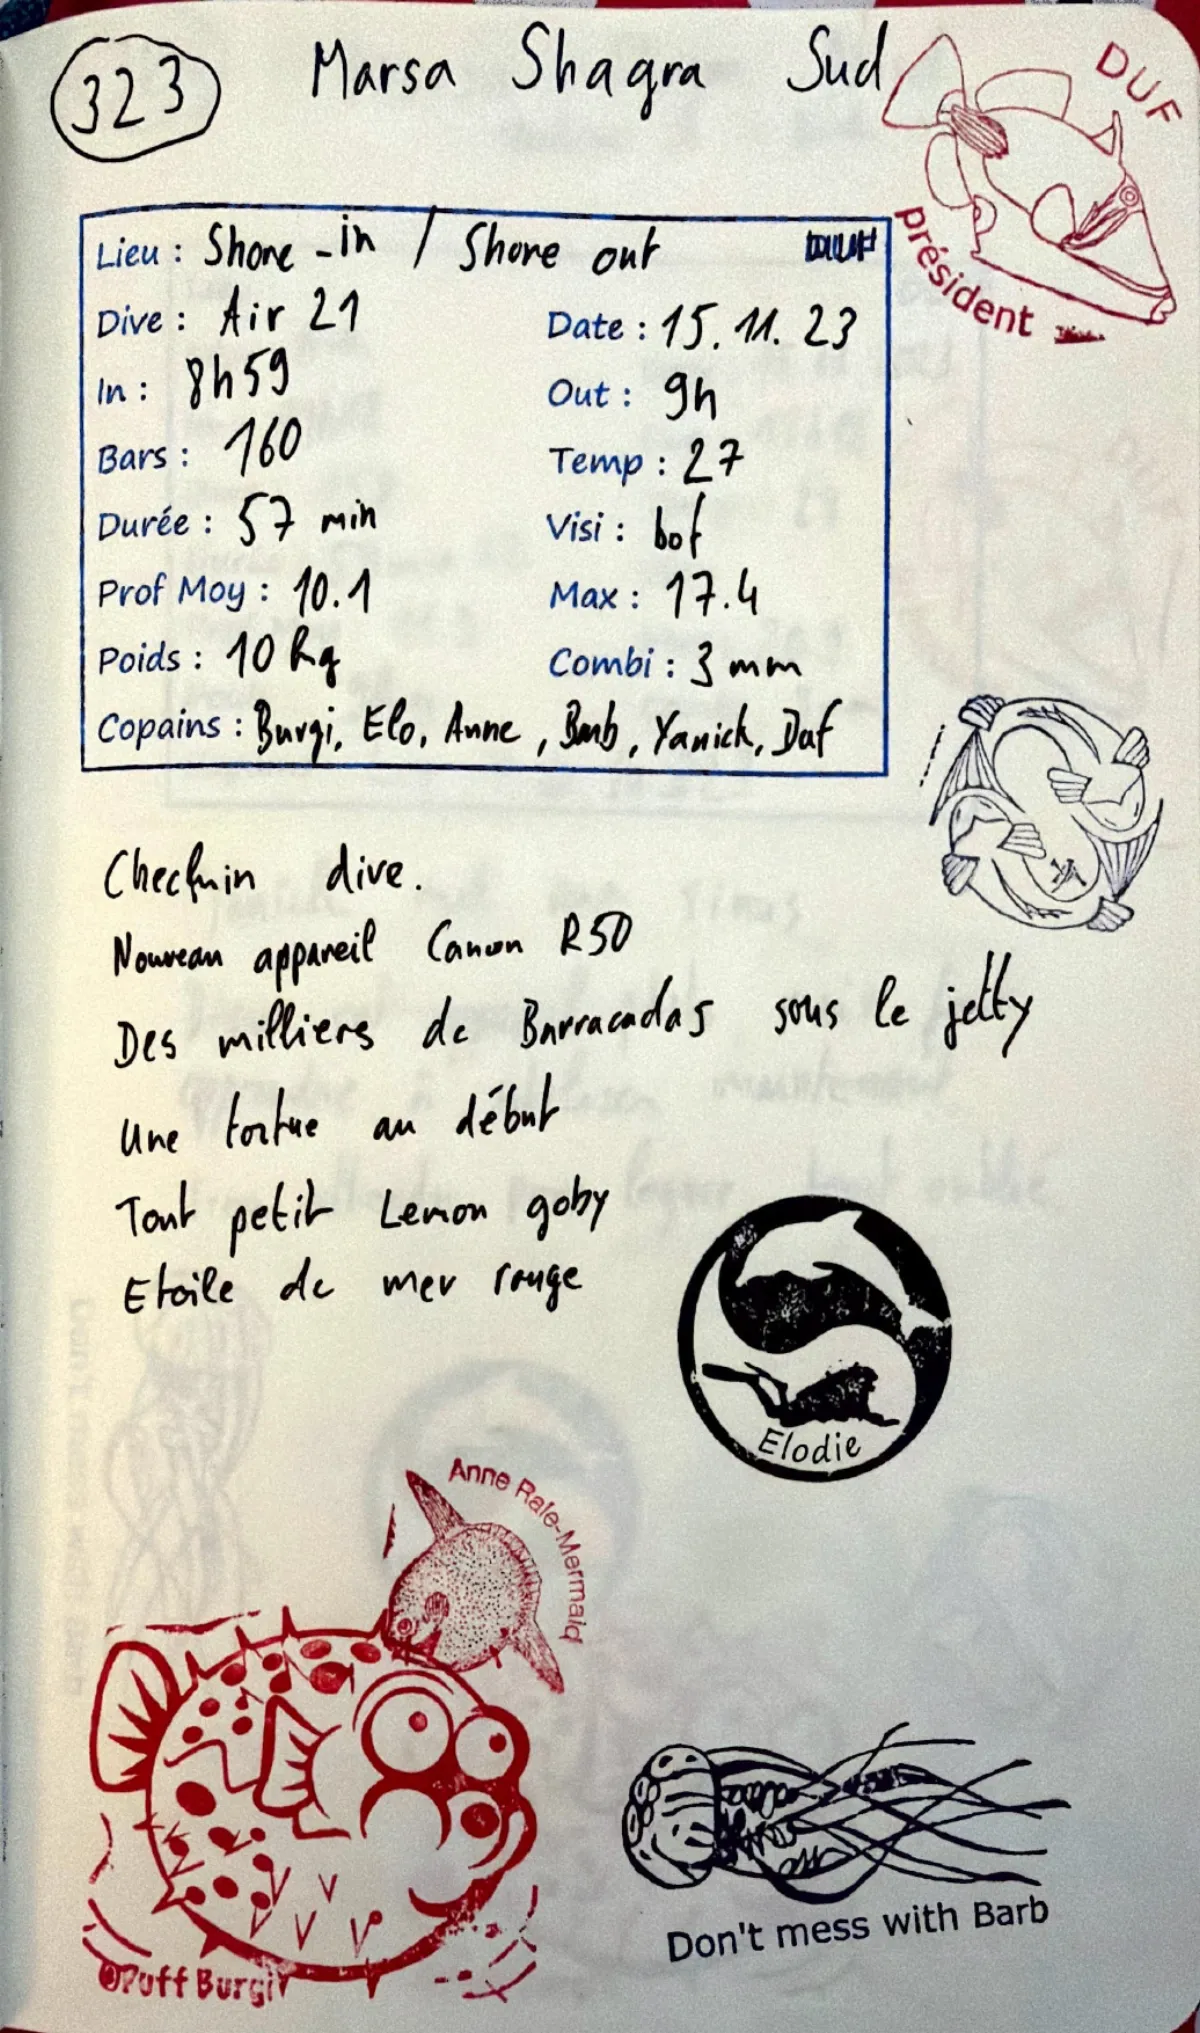 323 Marsa Shagra Sud
DUF
président
Lieu : Shore-in / Shore out
Dive : Air 21 Date : 15.11.23
In : 8h59 Out : 9h
Bars : 160 Temp : 27
Durée : 57 min Visi : bof
Prof Moy : 10.1 Max : 17.4
Poids : 10 kg Combi : 3 mm
Copains : Burgi, Elo, Anne, Barb, Yanick, Duf
Checkin dive.
Nouveau appareil Canon R50
Des milliers de Barracadas sous le jetty
Une tortue au début
Tout petit Lemon goby
Etoile de mer rouge
Elodie
Anne Rale-Mermaid
Puff Burgi
Don't mess with Barb